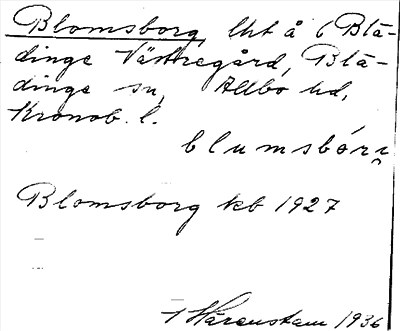 Blomsborg, lht å 6 Blä-
dinge Västregård, Blä-
dinge sn, Allbo hd,
Kronob. l.
blumsbórj
Blomsborg kb 1927
Härenstam 1936